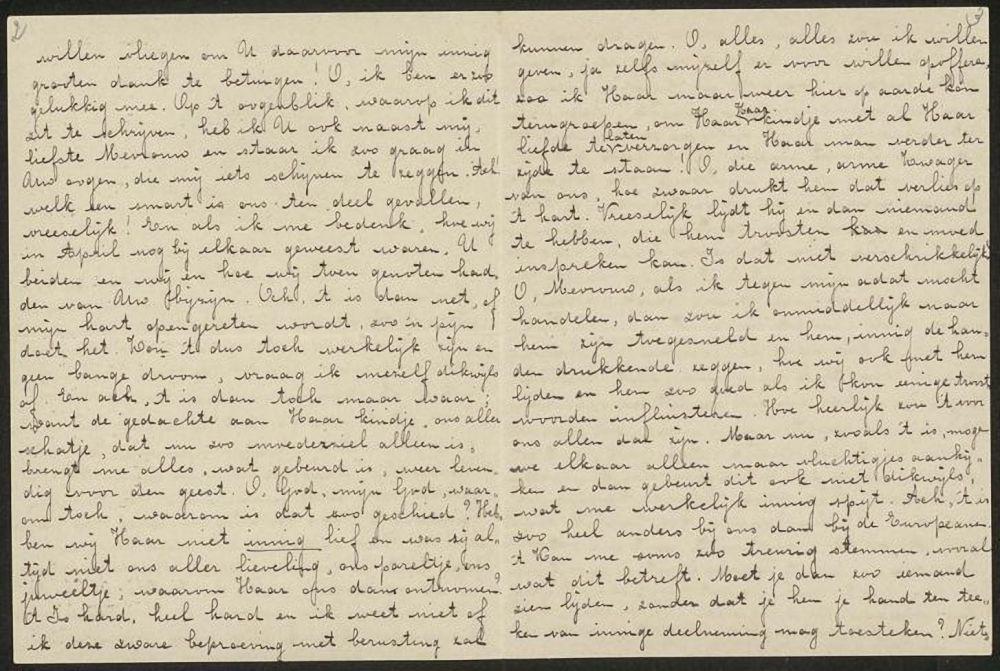 2
willen vliegen om U daarvoor mijn innig
grooten dank te betuigen! O, ik ben er zoo
gelukkig mee. Op 't oogenblik, waarop ik dit
zit te schrijven, heb ik U ook naast mij,
liefste Mevrouw en staar ik zoo graag in
Uw oogen, die mij iets schijnen te zeggen. Ach
welk een smart is ons ten deel gevallen,
vreeselijk! En als ik me bedenk, hoe wij
in April nog bij elkaar geweest waren. U
beiden en wij en hoe wij toen genoten had-
den van Uw bijzijn. Och, 't is dan net, of
mijn hart opengereten wordt, zoo'n pijn
doet het. Kon 't dus toch werkelijk zijn en
geen bange droom, vraag ik mezelf dikwijls
af. En ach, 't is dan toch maar waar,
want de gedachte aan Haar kindje, ons aller
schatje, dat nu zoo moederziel alleen is,
brengt me alles, wat gebeurd is, weer leven-
dig voor den geest. O, God, mijn God, waar-
om toch, waarom is dat zoo geschied? Heb-
ben wij Haar niet innig lief en was zij al-
tijd niet ons aller lieveling, ons pareltje, ons
juweeltje; waarom Haar ons dan ontnomen?
't Is hard, heel hard en ik weet niet of
ik deze zware beproeving met berusting zal
3
kunnen dragen. O, alles, alles zou ik willen
geven, ja zelfs mijzelf er voor willen opofferen,
zoo ik Haar maar weer hier op aarde kon
terugroepen, om Haar Haar kindje met al Haar
liefde te laten verzorgen en Haar man verder ter
zijde te staan! O, die arme, arme Zwager
van ons, hoe zwaar drukt hem dat verlies op
't hart. Vreeselijk lijdt hij en dan niemand
te hebben, die hem troosten kan en moed
inspreken kan. Is dat niet verschrikkelijk?
O, Mevrouw, als ik tegen mijn adat mocht
handelen, dan zou ik onmiddellijk naar
hem zijn toegesneld en hem, innig de han-
den drukkende zeggen, hoe wij ook met hem
lijden en hem zoo goed als ik kon eenige troost
woorden influisteren. Hoe heerlijk zou 't voor
ons allen dan zijn. Maar nu, zooals 't is, mogen
we elkaar alleen maar vluchtigjes aankij-
ken en dan gebeurt dit ook niet dikwijls,
wat me werkelijk innig spijt. Ach, 't is
zoo heel anders bij ons dan bij de Europeanen.
't Kan me soms zoo treurig stemmen, vooral
wat dit betreft. Moet je dan zoo iemand
zien lijden, zonder dat je hem je hand ten tee-
ken van innige deelneming mag toesteken? Niet